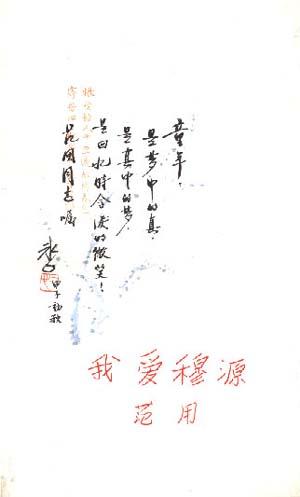 童年，
是梦中的真，
是真中的梦，
是回忆时含泪的微笑！
范用同志嘱
冰心
甲子初秋
我爱穆源
范用